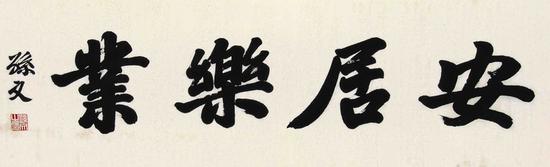 安居樂業
孫文